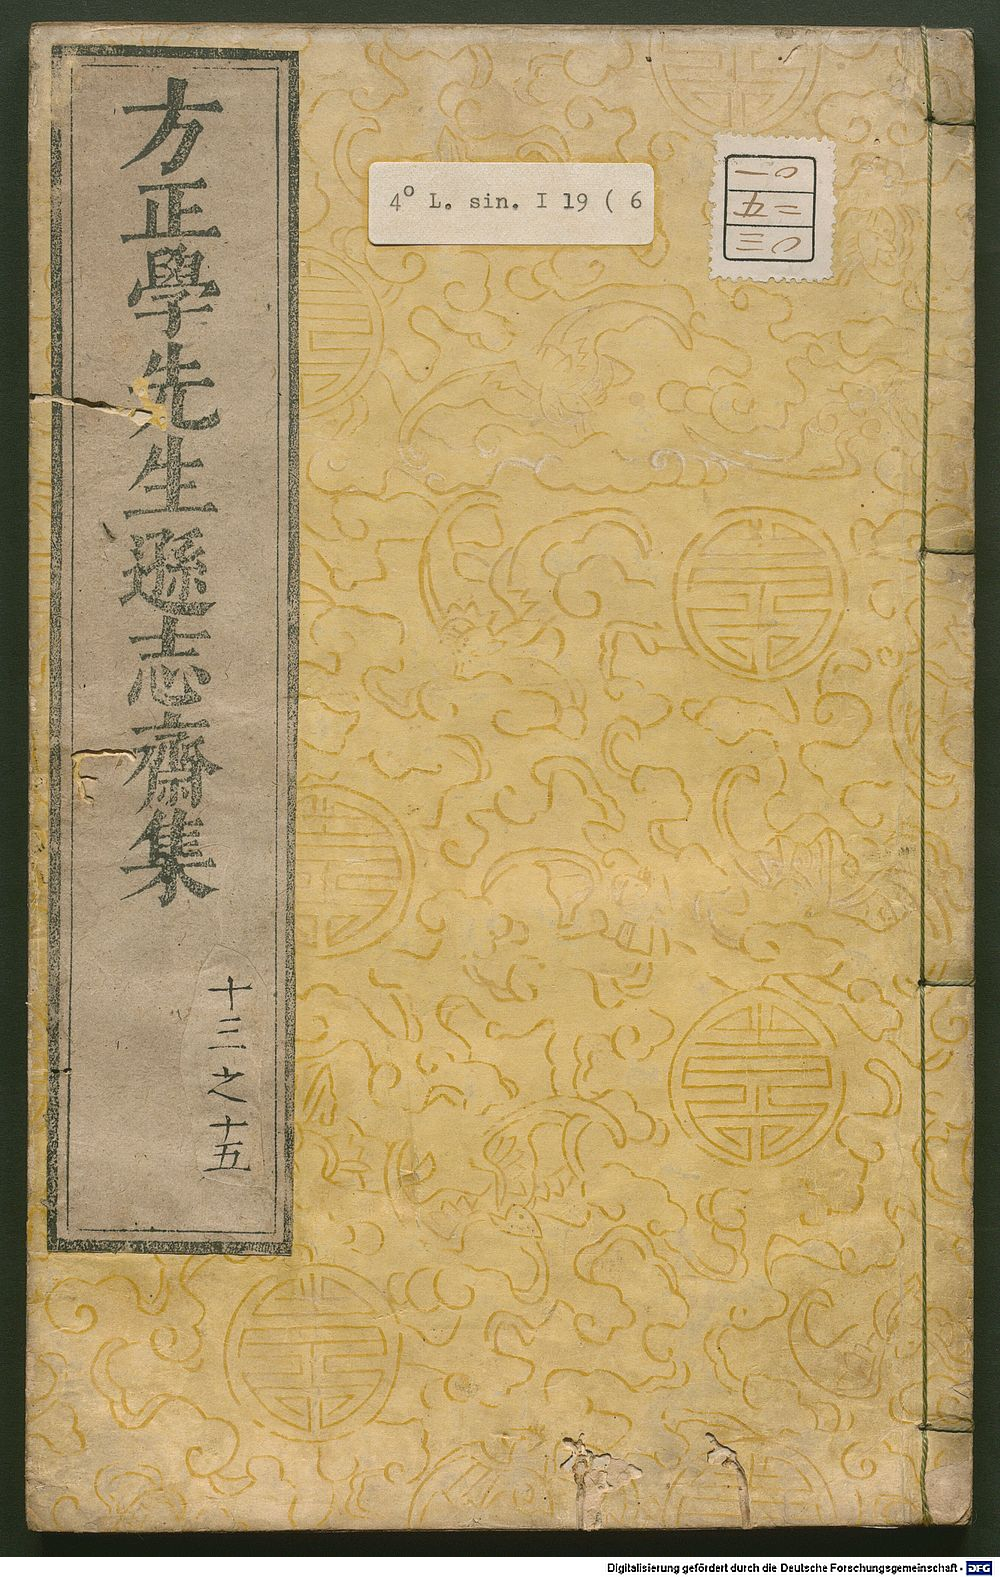 方正學先生遜志齋集
十三之十五
4° L. sin. I 19 ( 6
Digitalisierung gefördert durch die Deutsche Forschungsgemeinschaft - DFG